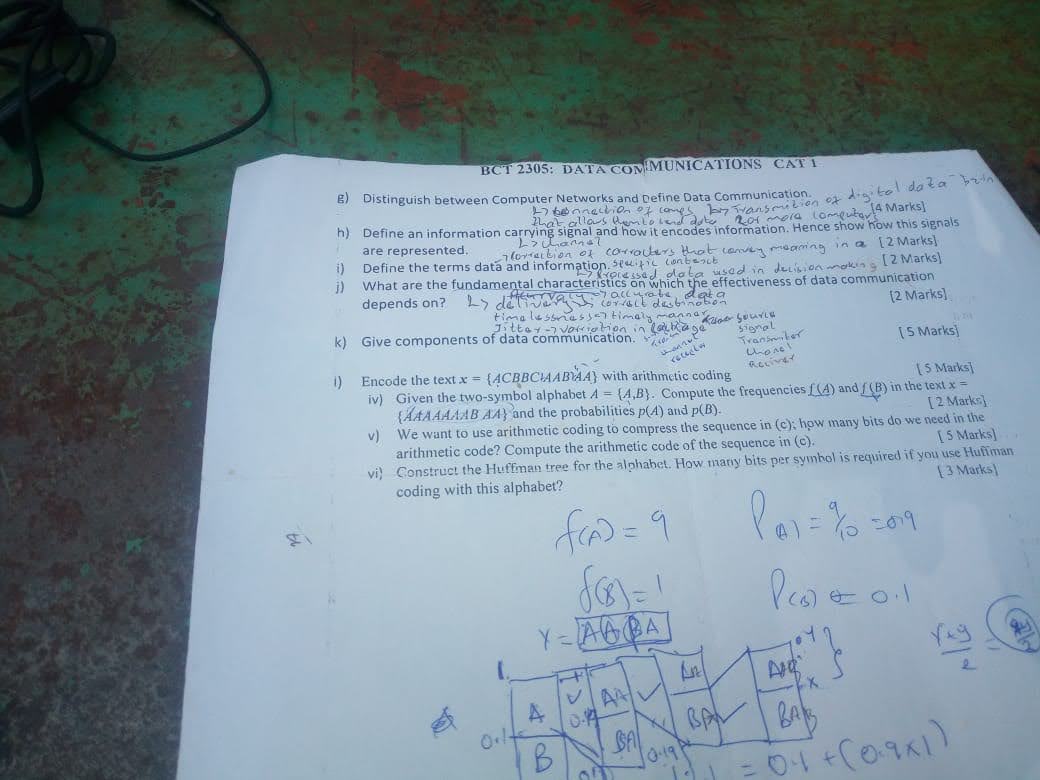 BCT 2305: DATA COMMUNICATIONS CAT 1
g) Distinguish between Computer Networks and Define Data Communication.
↳ connection of comps ↳ Transmition of digital data btn
that allows them to send data 2 or more computers [4 Marks]
h) Define an information carrying signal and how it encodes information. Hence show how this signals
↳ channel
are represented. → correction of carracters that convey meaning in a [2 Marks]
i) Define the terms data and information. specific context [2 Marks]
↳ processed data used in decision making
j) What are the fundamental characteristics on which the effectiveness of data communication
Accuracy → accurate data
depends on? ↳ delivery → correct destination [2 Marks]
timelessness → timely manner
Jitter → varriation in source
k) Give components of data communication. signal [5 Marks]
Transmitor
chanel
Reciver
l) Encode the text x = {ACBBCAABAA} with arithmetic coding [5 Marks]
iv) Given the two-symbol alphabet A = {A,B}. Compute the frequencies f(A) and f(B) in the text x =
{AAAAAAAB AA} and the probabilities p(A) and p(B). [2 Marks]
v) We want to use arithmetic coding to compress the sequence in (c); how many bits do we need in the
arithmetic code? Compute the arithmetic code of the sequence in (c). [5 Marks]
vi) Construct the Huffman tree for the alphabet. How many bits per symbol is required if you use Huffman
coding with this alphabet? [3 Marks]
f(A) = 9 P(A) = 9/10 = 0.9
f(B) = 1 P(B) = 0.1
Y = AABA
1.
A AA BA
0.1 B BA BA BAB
0.19
= 0.1 + (0.9x1)